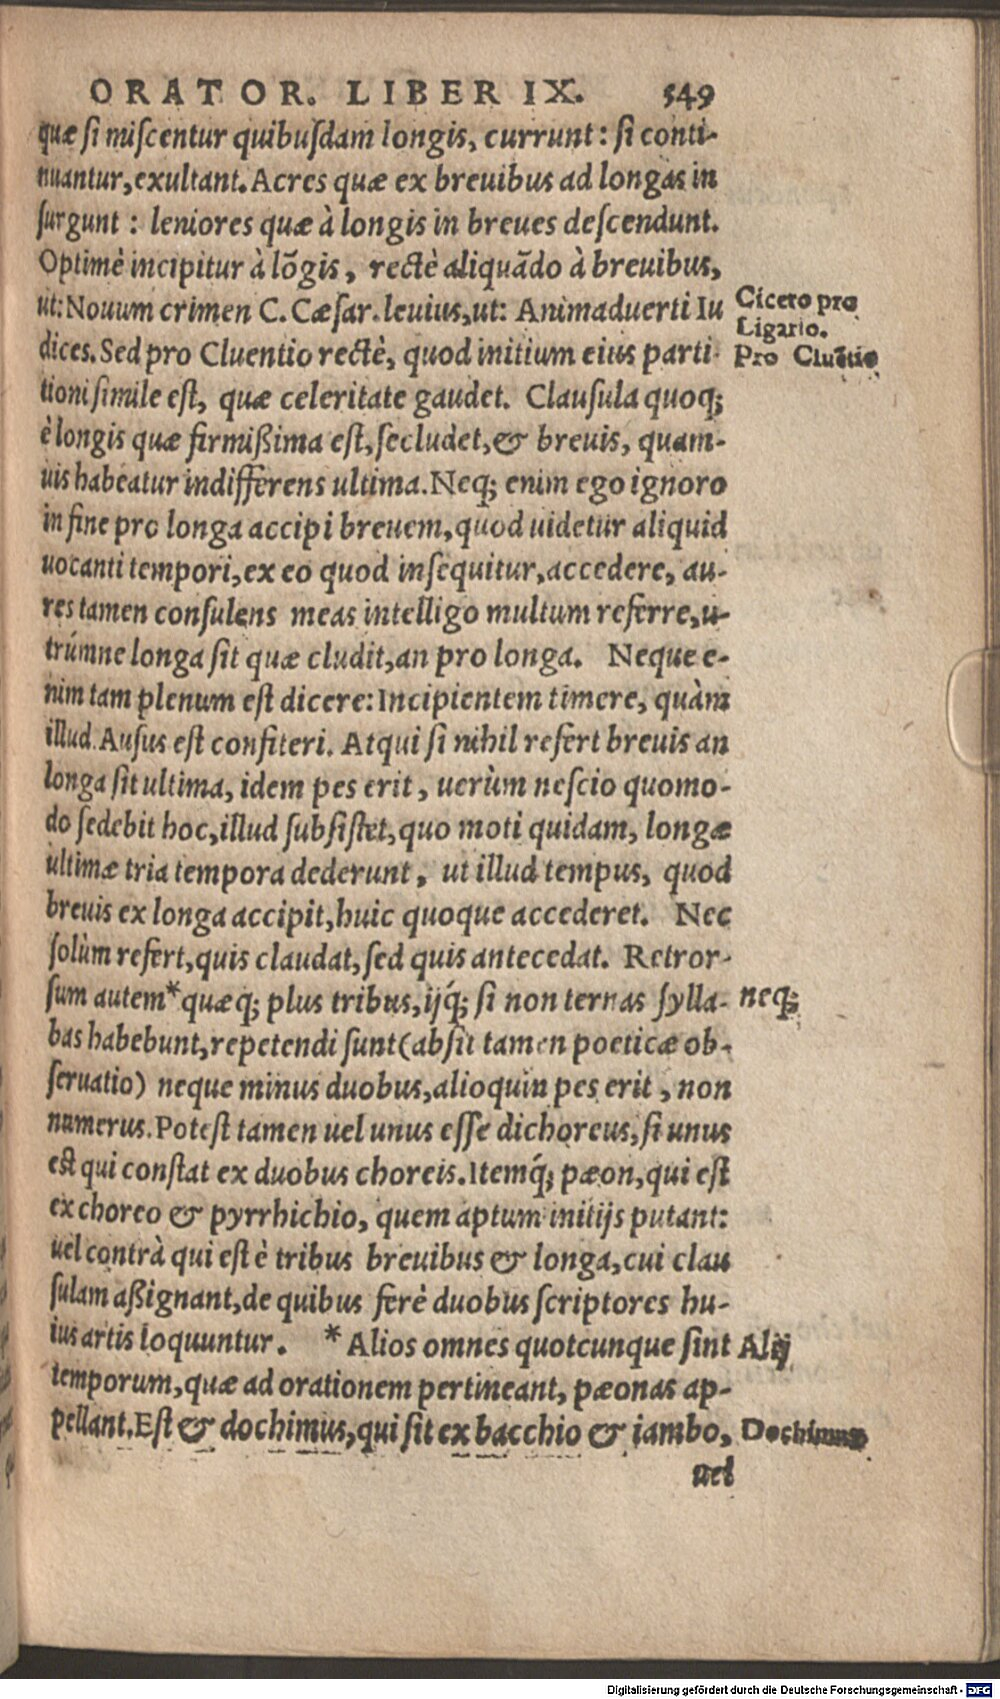 ORATOR. LIBER IX. 549
quæ ſi miſcentur quibuſdam longis, currunt: ſi conti-
nuantur, exultant. Acres quæ ex breuibus ad longas in
ſurgunt: leniores quæ à longis in breues deſcendunt.
Optimè incipitur à lõgis, rectè aliquãdo à breuibus,
ut: Nouum crimen C. Cæſar. leuius, ut: Animaduerti Iu
Cicero pro
Ligario.
dices. Sed pro Cluentio rectè, quod initium eius parti-
Pro Cluẽtio
tioni ſimile eſt, quæ celeritate gaudet. Clauſula quoq;
è longis quæ firmißima eſt, ſecludet, & breuis, quam-
uis habeatur indifferens ultima. Neq; enim ego ignoro
in fine pro longa accipi breuem, quod uidetur aliquid
uocanti tempori, ex eo quod inſequitur, accedere, au-
res tamen conſulens meas intelligo multum referre, u-
trúmne longa ſit quæ cludit, an pro longa. Neque e-
nim tam plenum eſt dicere: Incipientem timere, quàm
illud. Auſus eſt confiteri. Atqui ſi nihil refert breuis an
longa ſit ultima, idem pes erit, uerùm neſcio quomo-
do ſedebit hoc, illud ſubſiſtet, quo moti quidam, longæ
ultimæ tria tempora dederunt, ut illud tempus, quod
breuis ex longa accipit, huic quoque accederet. Nec
ſolùm refert, quis claudat, ſed quis antecedat. Retror-
ſum autem* quæq; plus tribus, ijq́; ſi non ternas ſylla-
neq;
bas habebunt, repetendi ſunt (abſit tamen poeticæ ob-
ſeruatio) neque minus duobus, alioquin pes erit, non
numerus. Poteſt tamen uel unus eſſe dichoreus, ſi unus
eſt qui conſtat ex duobus choreis. Itemq́; pæon, qui eſt
ex choreo & pyrrhichio, quem aptum initijs putant:
uel contrà qui eſt è tribus breuibus & longa, cui clau
ſulam aßignant, de quibus ferè duobus ſcriptores hu-
ius artis loquuntur. * Alios omnes quotcunque ſint
Alij
temporum, quæ ad orationem pertineant, pæonas ap-
pellant. Eſt & dochimius, qui ſit ex bacchio & iambo,
uel
Digitalisierung gefördert durch die Deutsche Forschungsgemeinschaft - DFG